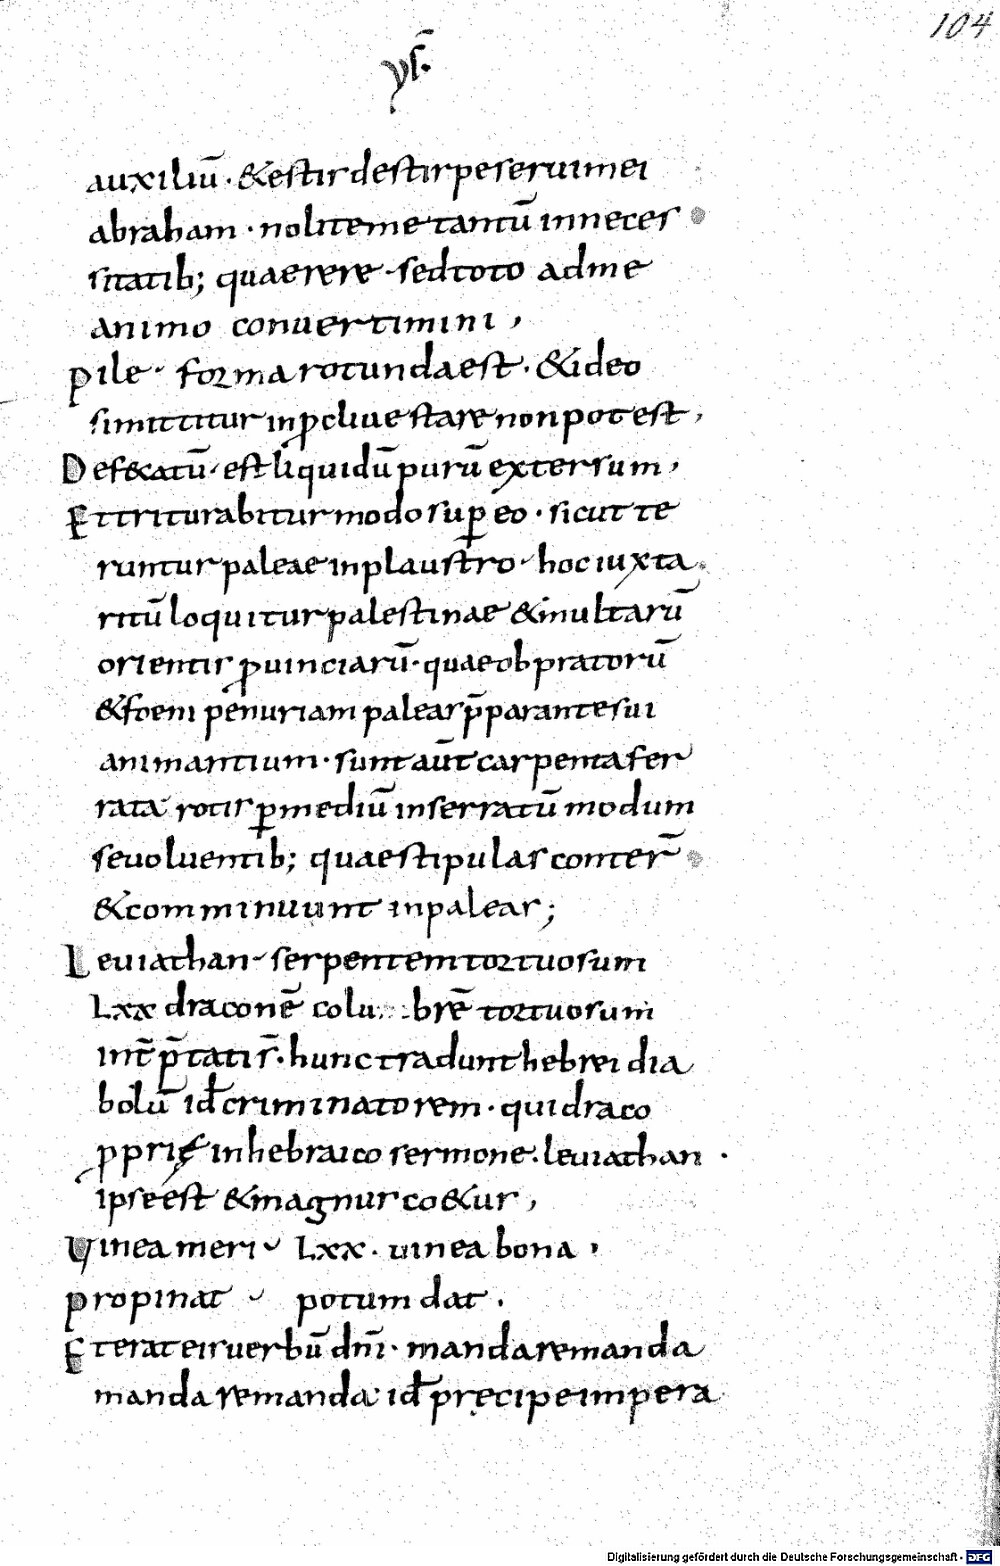 104
ys̄.
auxiliū. &estis destirpe serui mei
abraham . nolite me tantū inneces
sitatib; quaerere . sed toto ad me
animo conuertimini ,
Pile . forma rotunda est . & ideo
simittitur in ꝓcliue stare non potest ,
Def&catū . est liquidū purū extersum ,
Et triturabitur modo suꝑ eo . sicut te
runtur paleae in plaustro . hoc iuxta
ritū loquitur palestinae & multarū
orientis ꝓuinciarū . quae ob pratorū
& foeni penuriam paleas p̄parant esui
animantium . sunt aūt carpenta fer
rata rotis ꝑ mediū in serratū modum
se uoluentib; quae stipulas conter̄
& comminuunt in paleas ;
Leuiathan serpentem tortuosum
Lxx draconē colu brē tortuosum
int̄p̄tati s̄ . hunc tradunt hebrei dia
bolū id̄ criminatorem . qui draco
ꝓprię in hebraico sermone . leuiathan .
ipse est & magnus co&us ,
Vinea meri Lxx . uinea bona ,
Propinat potum dat .
Et erat eis uerbū dn̄i . manda remanda
manda remanda id̄ pręcipe impera
Digitalisierung gefördert durch die Deutsche Forschungsgemeinschaft - DFG